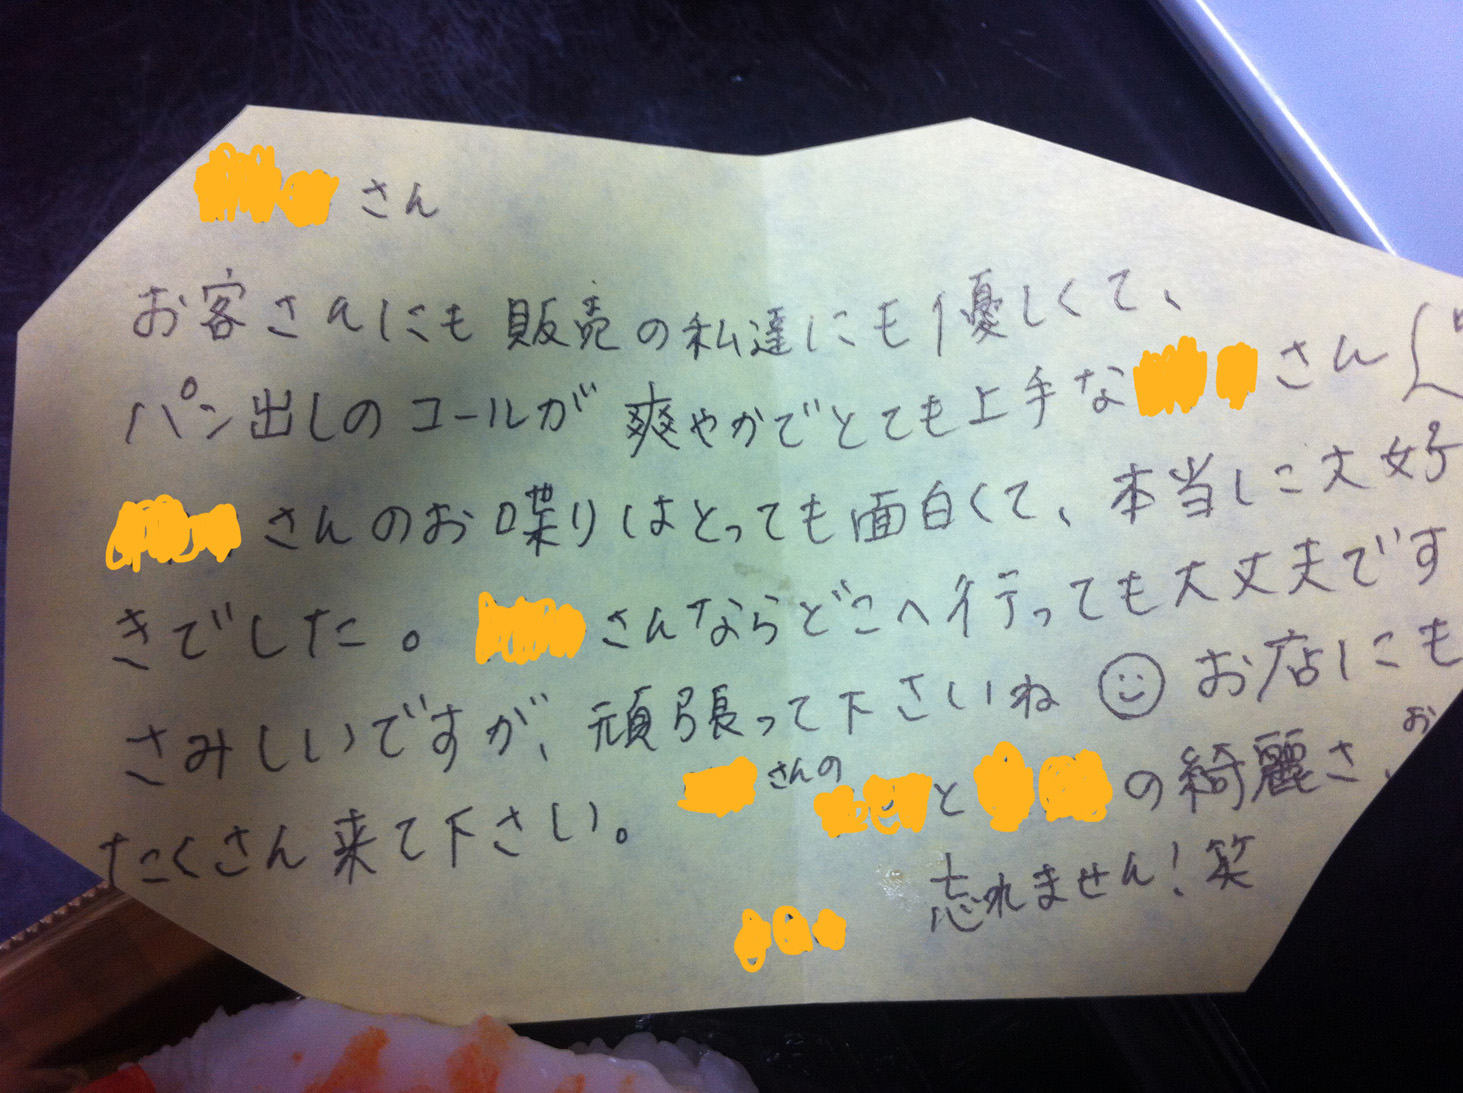 さん
お客さんにも販売の私達にも優しくて、
パン出しのコールが爽やかでとても上手な さん
さんのお喋りはとっても面白くて、本当に大好
きでした。 さんならどこへ行っても大丈夫です
さみしいですが、頑張って下さいね お店にも
たくさん来て下さい。
さんの と の綺麗さ、お
忘れません!笑